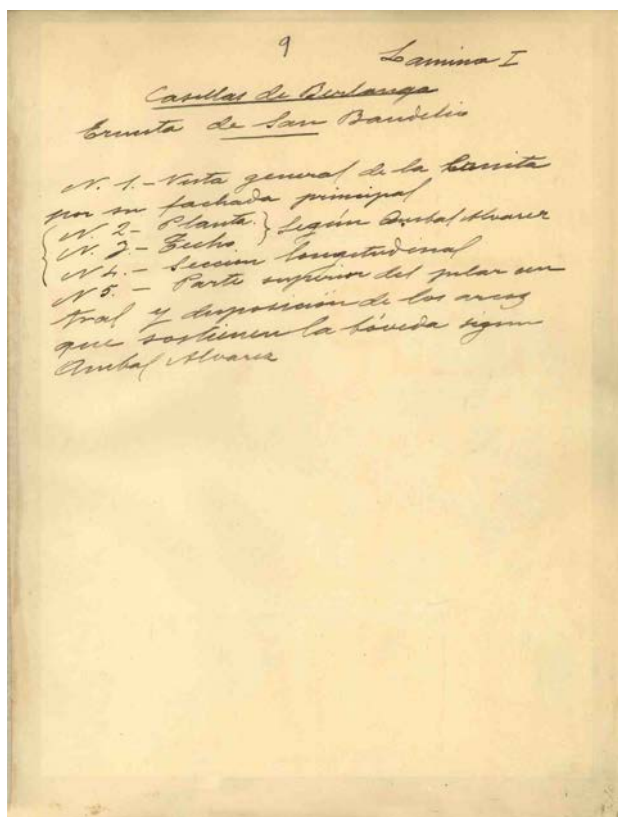 9 Lamina I
Casillas de Berlanga
Ermita de San Baudelio
N. 1.- Vista general de la Ermita
por su fachada principal
N. 2- Planta. } Según Anibal Alvarez
N. 3.- Techo.
N 4.- Sección longitudinal
N 5. - Parte superior del pilar cen
tral y disposición de los arcos
que sostienen la bóveda segun
Anibal Alvarez